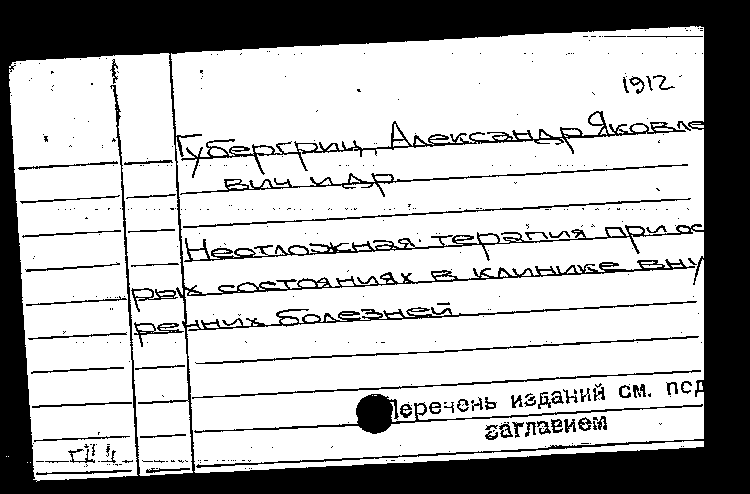 1912
Губергриц, Александр Яковле
вич и др.
Неотложная терапия при ос
рых состояниях в клинике вну
ренних болезней
Перечень изданий см. под
заглавием